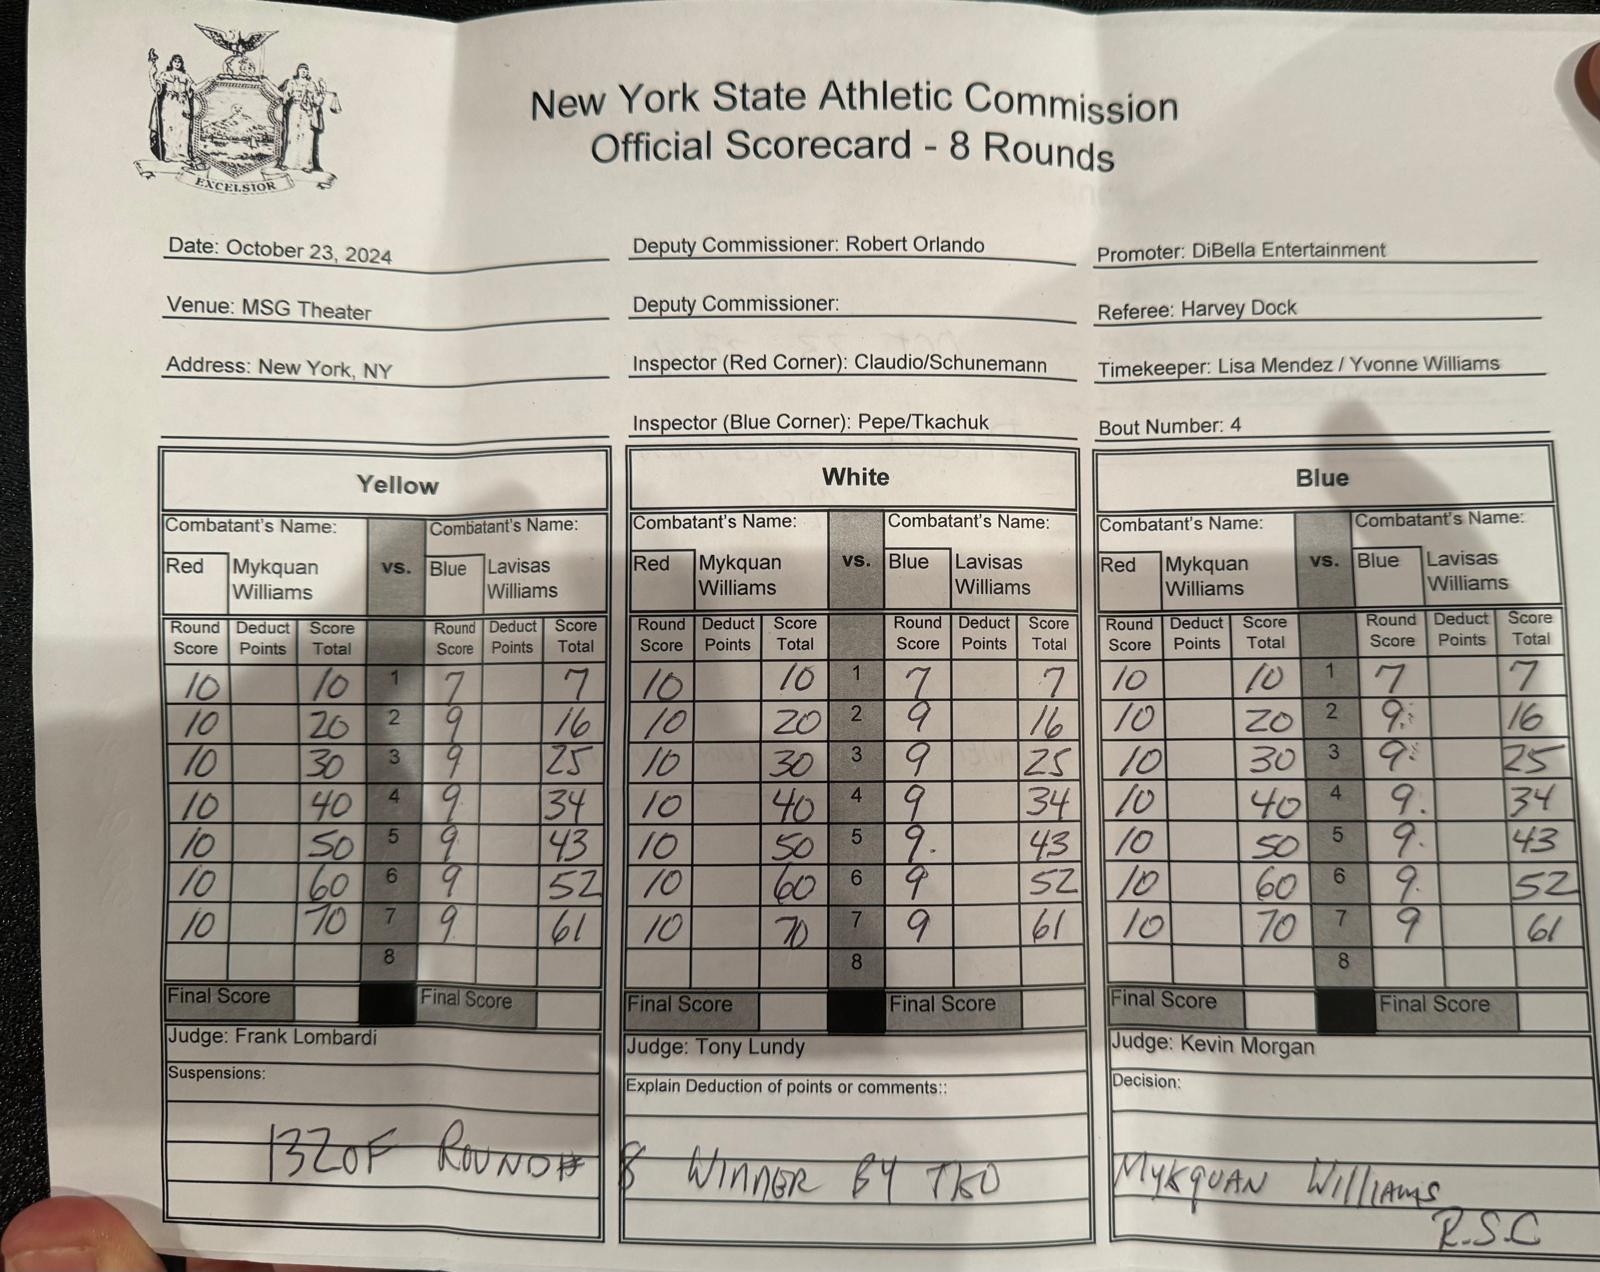 EXCELSIOR
New York State Athletic Commission
Official Scorecard - 8 Rounds
Date: October 23, 2024
Deputy Commissioner: Robert Orlando
Promoter: DiBella Entertainment
Venue: MSG Theater
Deputy Commissioner:
Referee: Harvey Dock
Address: New York, NY
Inspector (Red Corner): Claudio/Schunemann
Timekeeper: Lisa Mendez / Yvonne Williams
Inspector (Blue Corner): Pepe/Tkachuk
Bout Number: 4
Yellow
Combatant's Name: Combatant's Name:
Red Mykquan Williams vs. Blue Lavisas Williams
Round Score Deduct Points Score Total Round Score Deduct Points Score Total
10 10 1 7 7
10 20 2 9 16
10 30 3 9 25
10 40 4 9 34
10 50 5 9 43
10 60 6 9 52
10 70 7 9 61
8
Final Score Final Score
Judge: Frank Lombardi
Suspensions:
White
Combatant's Name: Combatant's Name:
Red Mykquan Williams vs. Blue Lavisas Williams
Round Score Deduct Points Score Total Round Score Deduct Points Score Total
10 10 1 7 7
10 20 2 9 16
10 30 3 9 25
10 40 4 9 34
10 50 5 9. 43
10 60 6 9 52
10 70 7 9 61
8
Final Score Final Score
Judge: Tony Lundy
Explain Deduction of points or comments::
Blue
Combatant's Name: Combatant's Name:
Red Mykquan Williams vs. Blue Lavisas Williams
Round Score Deduct Points Score Total Round Score Deduct Points Score Total
10 10 1 7 7
10 20 2 9 16
10 30 3 9 25
10 40 4 9. 34
10 50 5 9. 43
10 60 6 9. 52
10 70 7 9 61
8
Final Score Final Score
Judge: Kevin Morgan
Decision:
132 OF ROUND# 8 WINNER BY TKO MYKQUAN WILLIAMS
R.S.C